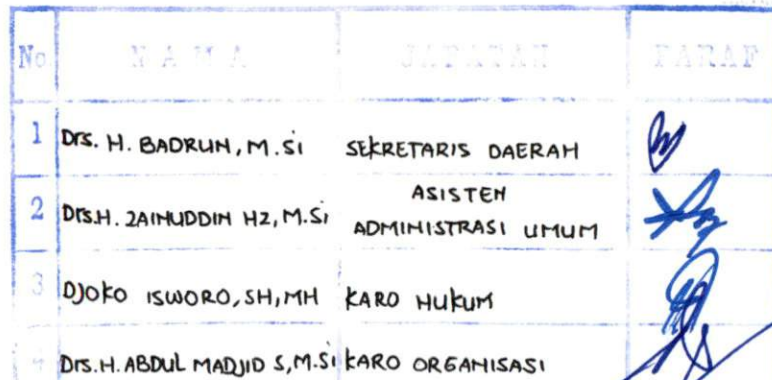 No NAMA JABATAN PARAF
1 Drs. H. BADRUN, M.Si SEKRETARIS DAERAH
2 Drs.H. ZAINUDDIN HZ, M.Si ASISTEN
ADMINISTRASI UMUM
3 DJOKO ISWORO, SH, MH KARO HUKUM
4 Drs.H. ABDUL MADJID S, M.Si KARO ORGANISASI